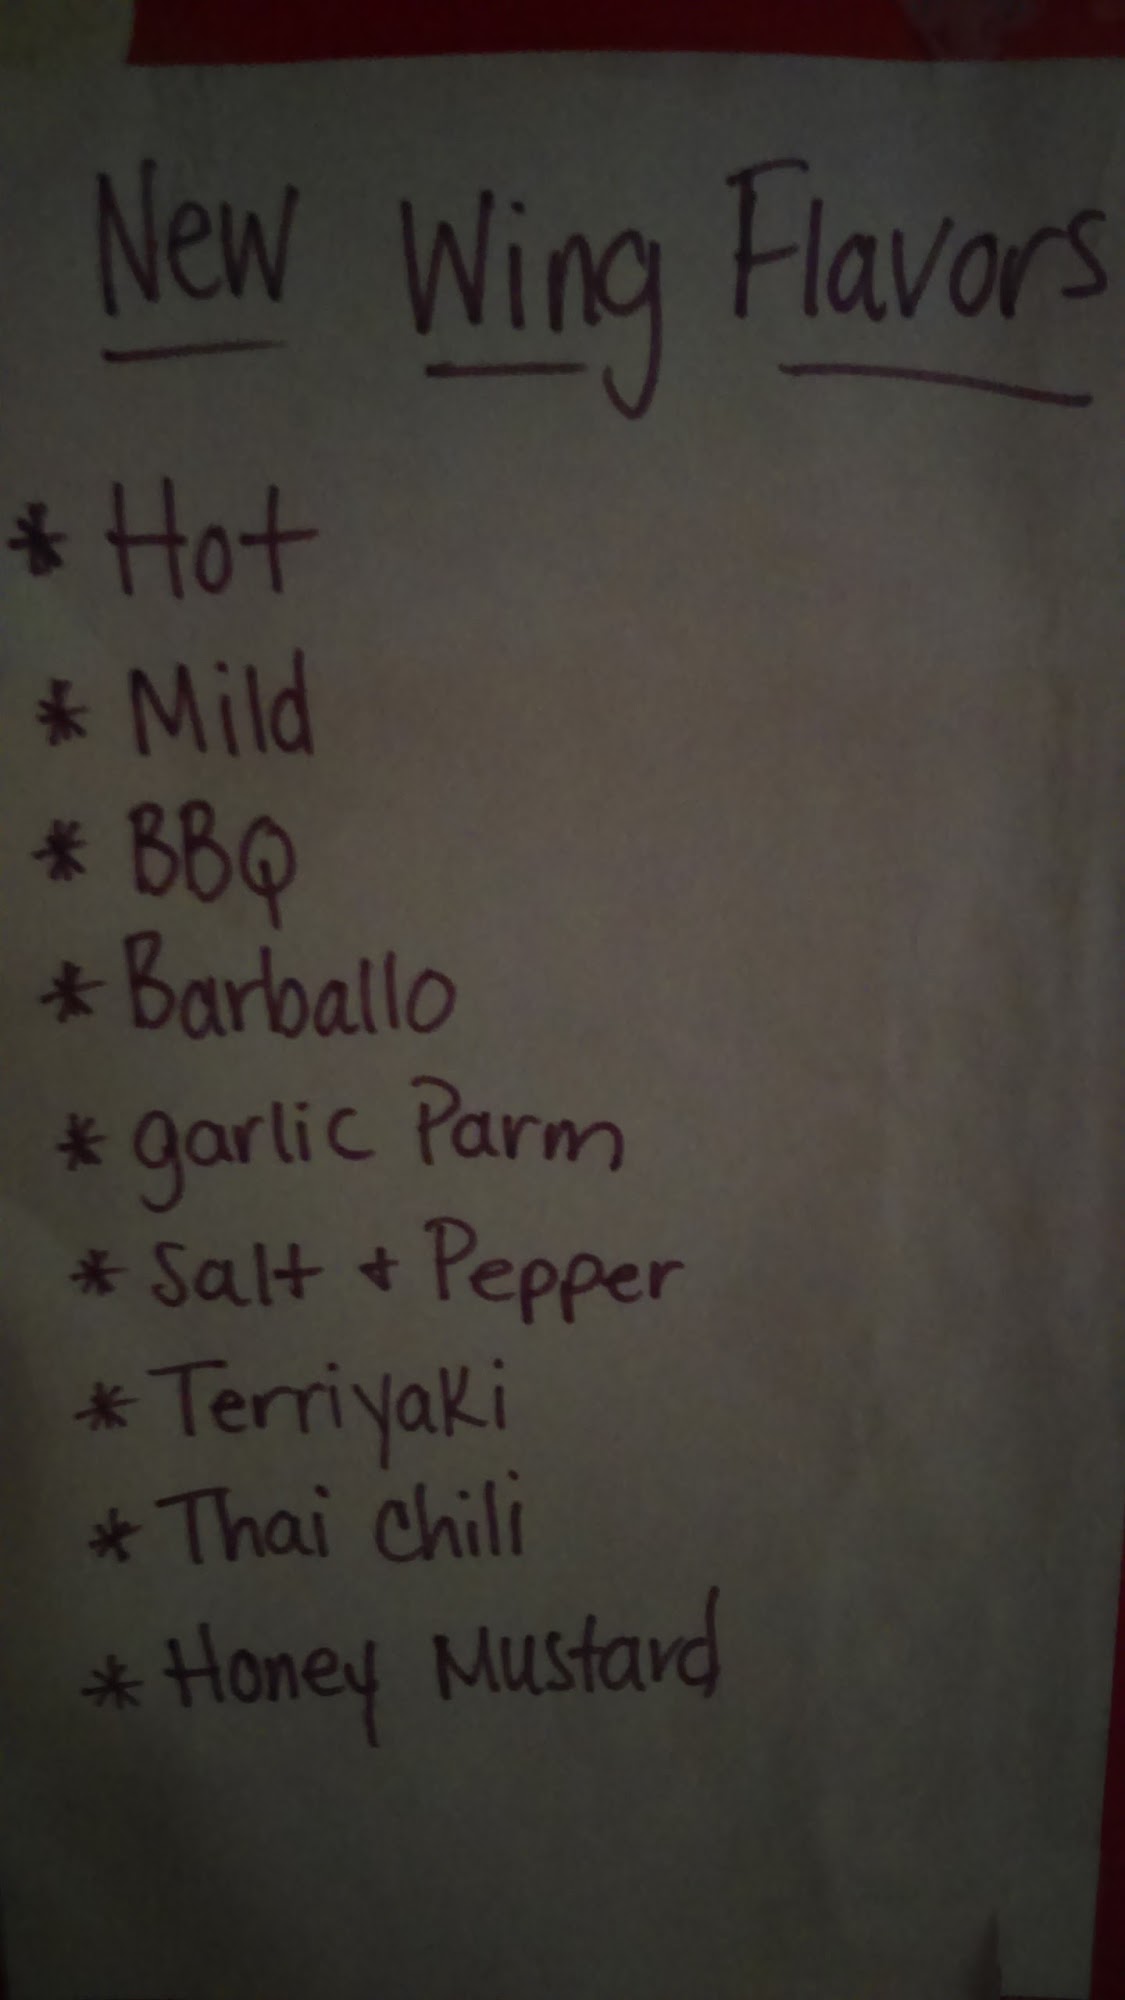 New Wing Flavors
* Hot
* Mild
* BBQ
* Barballo
* garlic Parm
* Salt + Pepper
* Terriyaki
* Thai Chili
* Honey Mustard